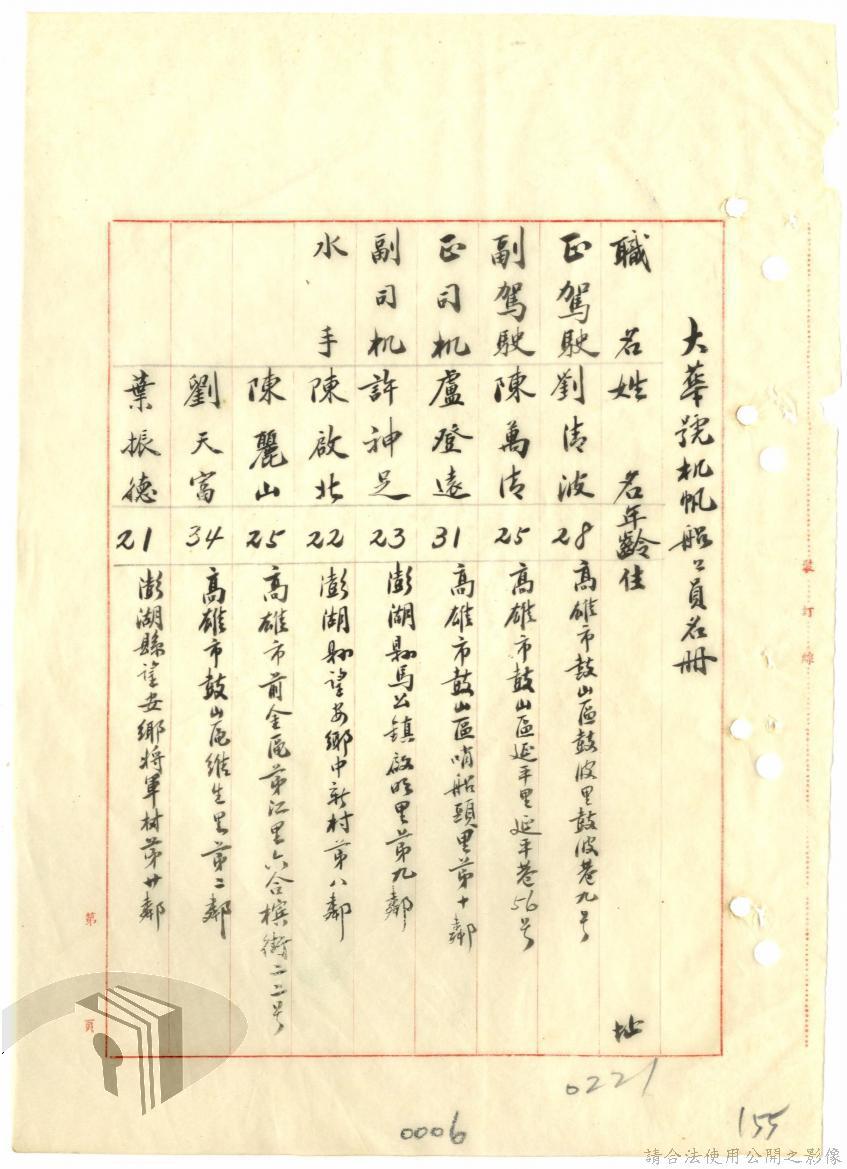 大華號机帆船公員名冊
職名 姓名 年齡 住址
正駕駛 劉清波 28 高雄市鼓山區鼓波里鼓波巷九号
副駕駛 陳萬清 25 高雄市鼓山區延平里延平巷56号
正司机 盧登遠 31 高雄市鼓山區哨船頭里第十鄰
副司机 許神足 23 澎湖縣馬公鎮啟明里第九鄰
水手 陳啟北 22 澎湖縣望安鄉中新村第八鄰
陳麗山 25 高雄市前金區草江里六合横街二二号
劉天富 34 高雄市鼓山區維生里第二鄰
葉振德 21 澎湖縣望安鄉將軍村第廿鄰
裝訂線
第 頁
0221
0006
155
請合法使用公開之影像